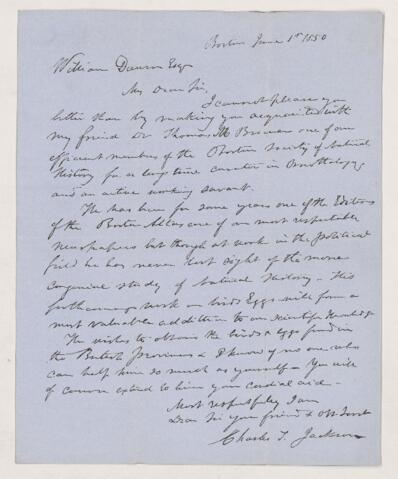 Boston June 1st 1850
William Dawson Esq
My Dear Sir,
I cannot please you
better than by making you acquainted with
my friend Dr Thomas M Brewer one of our
efficient members of the Boston Society of Natural
History for a long time curator in Ornithology,
and an active working savant.
He has been for some years one of the Editors
of the Boston Atlas one of our most respectable
Newspapers but though at work in the political
field he has never lost sight of the more
congenial study of Natural History. His
forthcoming work on birds Eggs will form a
most valuable addition to our scientific knowledge
He wishes to obtain the birds & eggs found in
the British Provinces & I know of no one who
can help him so much as yourself - You will
of course extend to him your cordial aid -
Most respectfully I am
Dear Sir your friend & Obt Servt
Charles T. Jackson